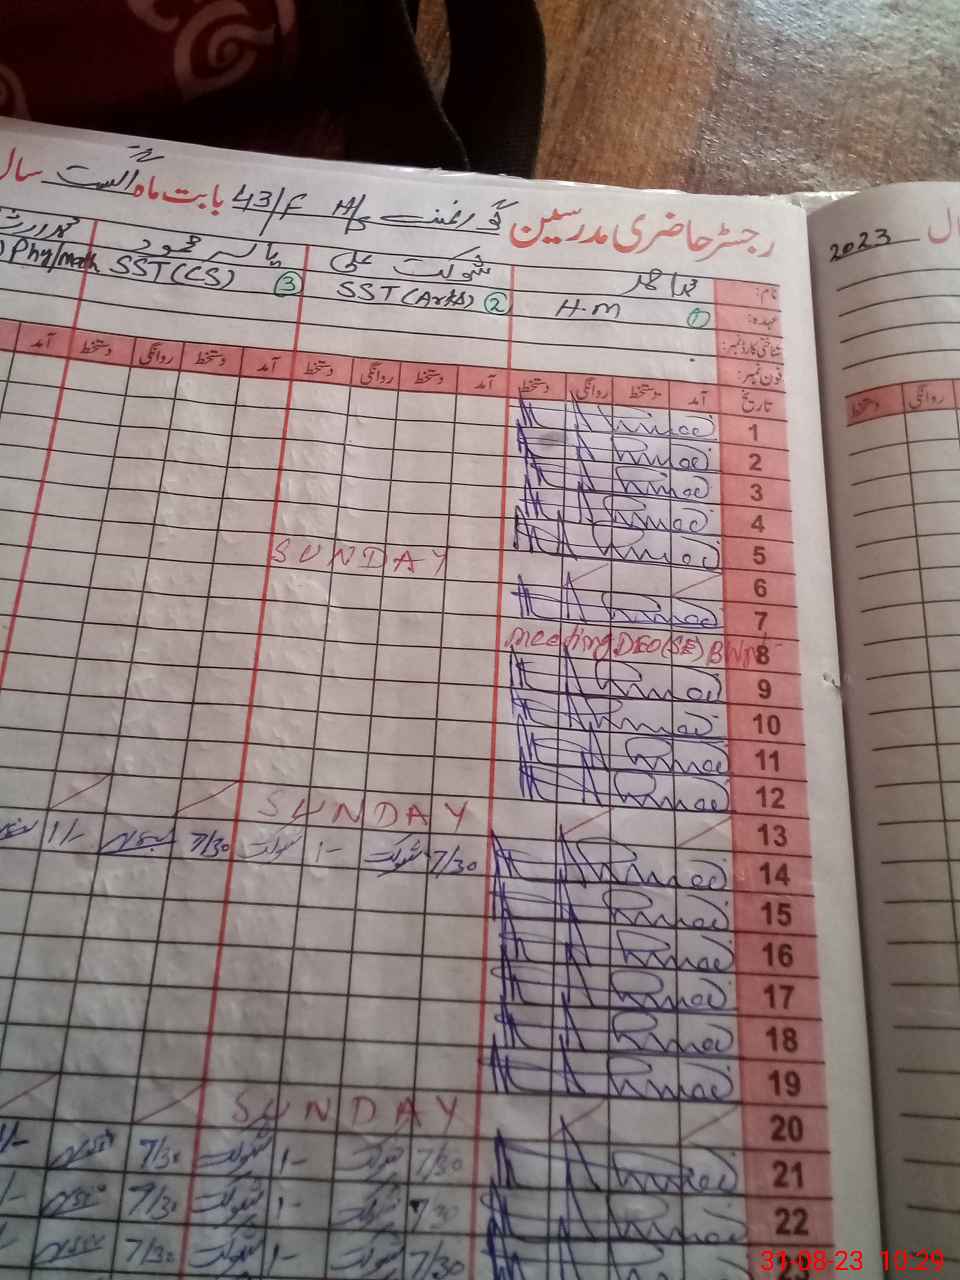 رجسٹر حاضری مدرسین گورنمنٹ H/S 43/F بابت ماہ اگست سال
2023 سال
نام: شوکت علی یاسر محمود
عہدہ: H.M ① SST (Arts) ② SST (CS) ③ Phy/math
شناختی کارڈ نمبر:
فون نمبر:
تاریخ آمد دستخط روانگی دستخط آمد دستخط روانگی دستخط آمد دستخط روانگی دستخط آمد
روانگی دستخط
1
2
3
4
5
6 SUNDAY
7
8 meeting DEO (SE) BWN
9
10
11
12
13 SUNDAY
14 7/30 شوکت 1/- شوکت 7/30 1/-
15
16
17
18
19
20 SUNDAY
21 7/30 شوکت 1/- شوکت 7/30 1/-
22 7/30 شوکت 1/- شوکت 7/30 1/-
7/30 شوکت 1/- شوکت 7/30 1/-
31-08-23 10:29